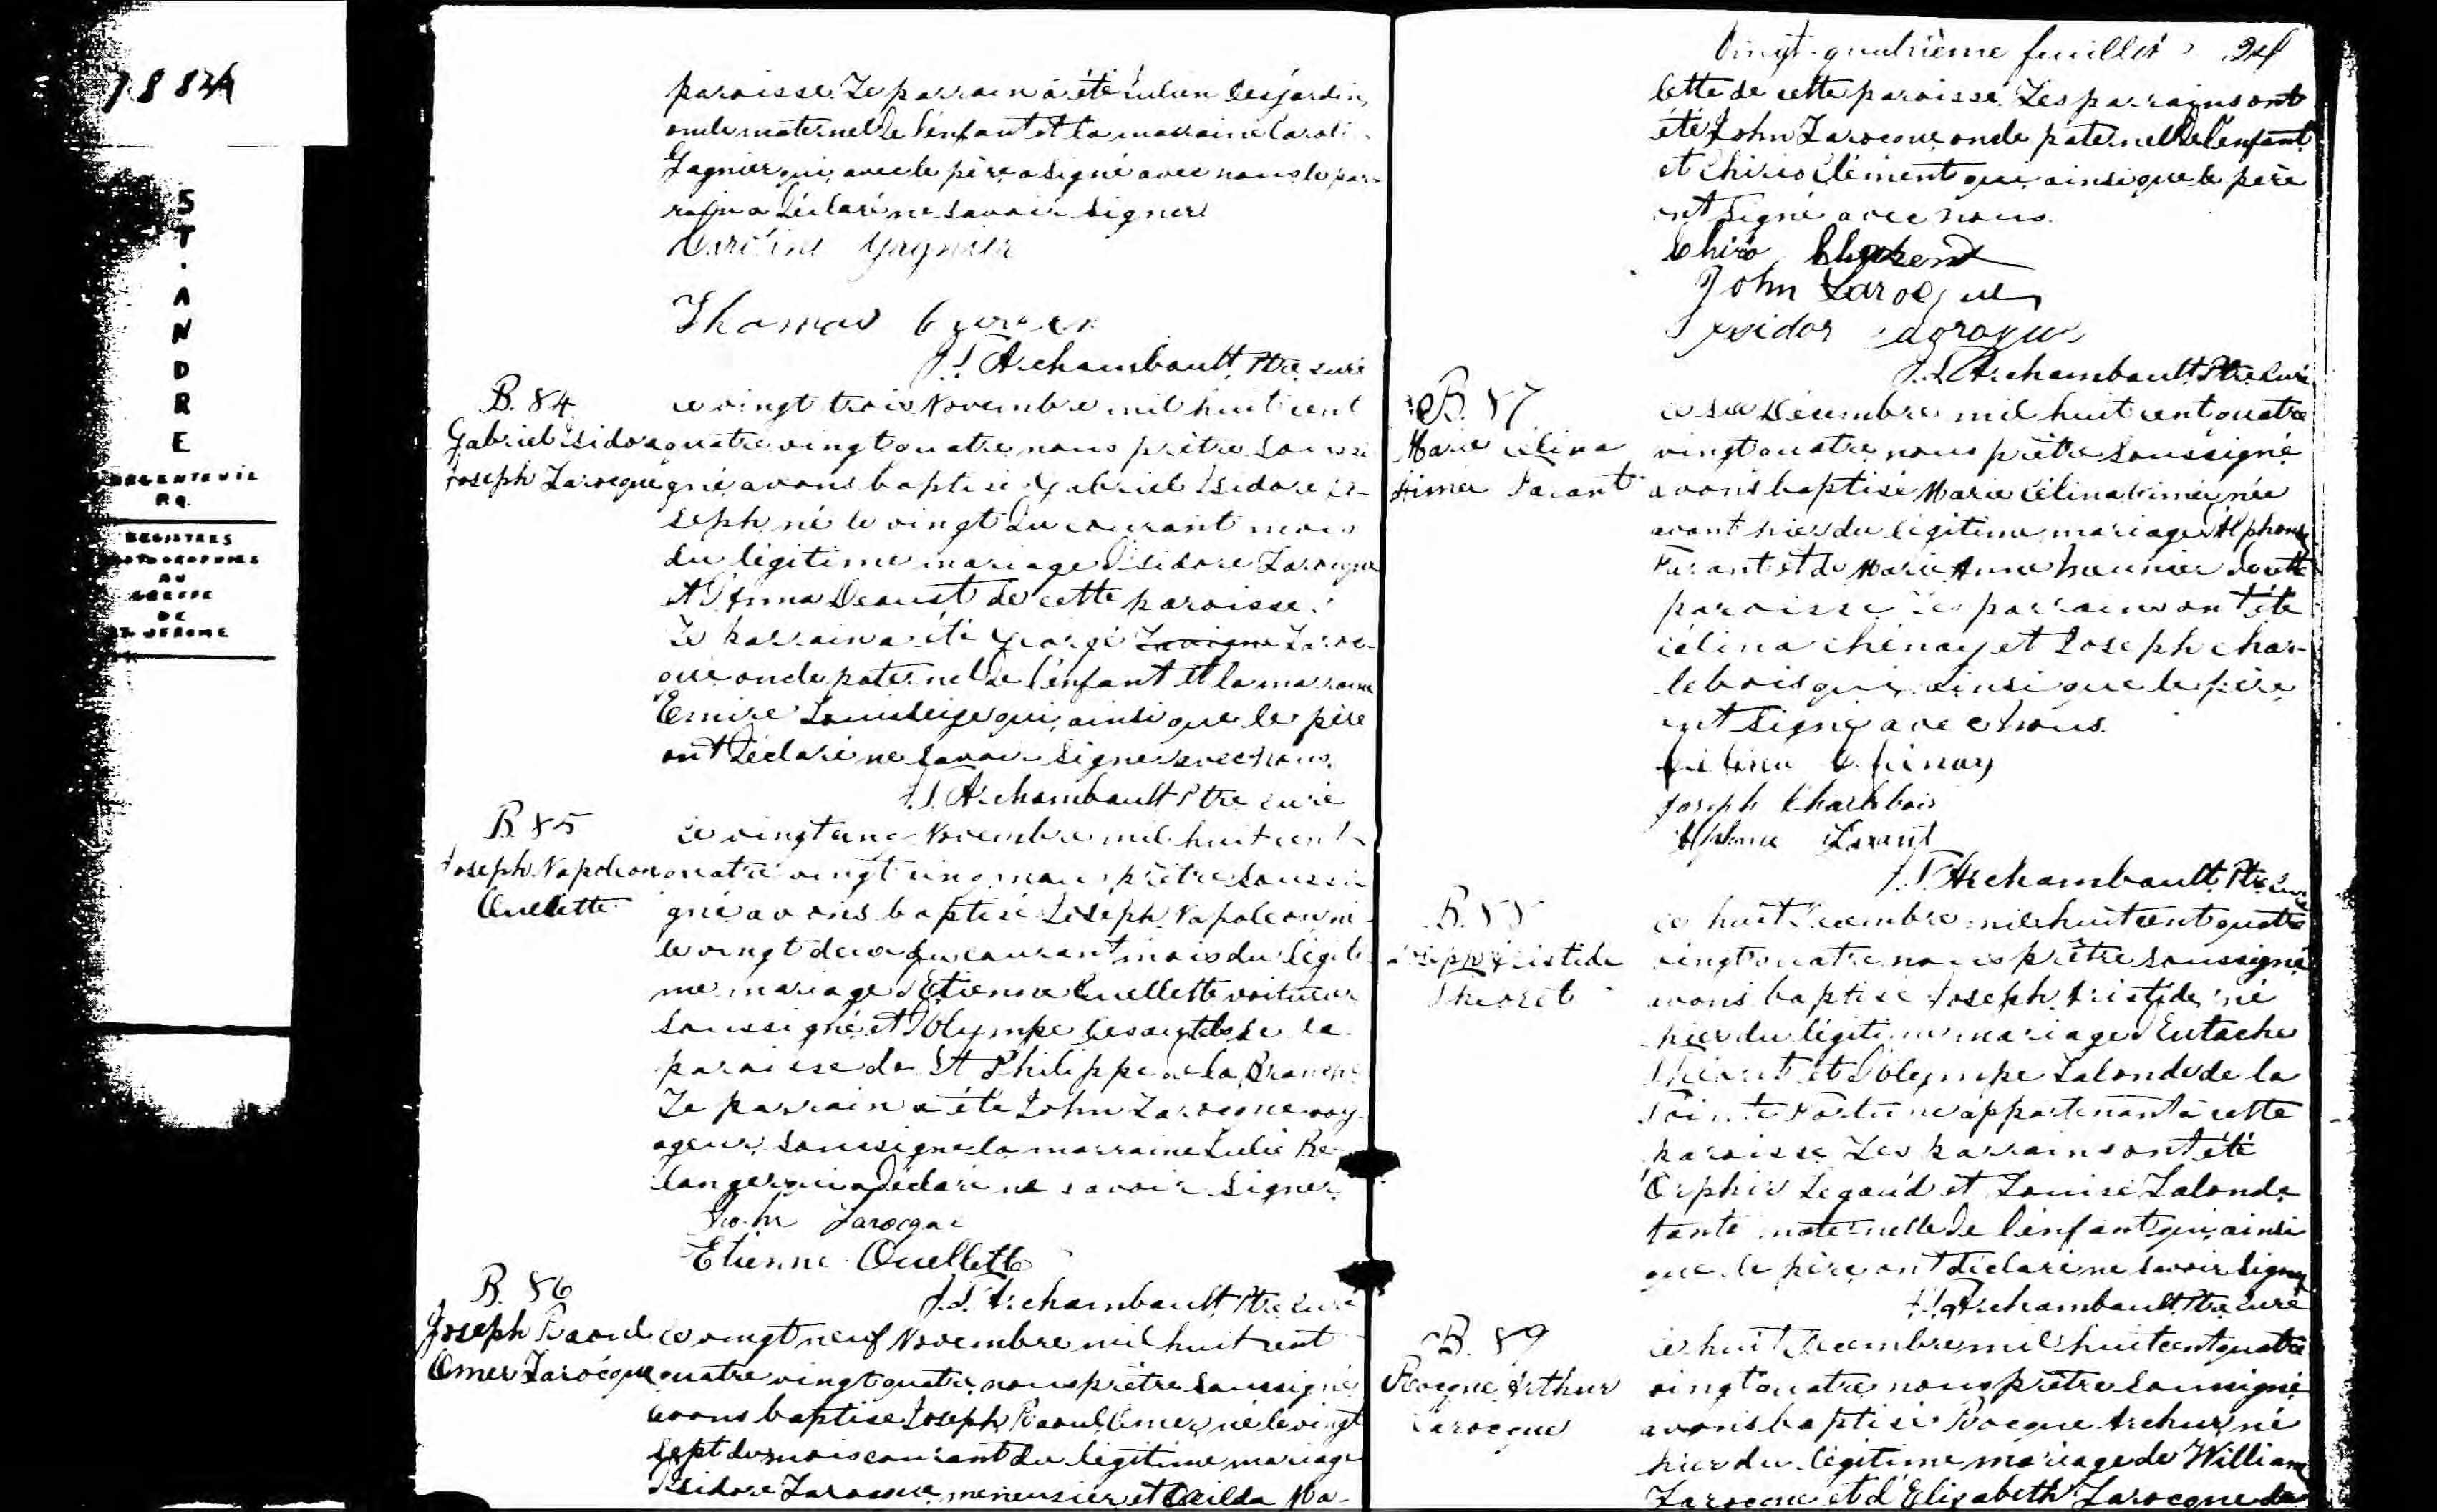 1884
ST. ANDRE
ARGENTEUIL
P.Q.
REGISTRES
PHOTOGRAPHIES
AU
GREFFE
DE
ST-JEROME
paroisse. Le parrain a été Julien Desjardins
oncle maternel de l'enfant et la marraine Caroli-
Gagnier qui, avec le père a signé avec nous le par-
rain a déclaré ne savoir signer
Caroline Gagnier
Thomas
J.S. Archambault Ptre curé
B. 84
Gabriel Isidore
Joseph Larocque
ce vingt trois Novembre mil huit cent
quatre vingt quatre nous prêtre soussi
gné avons baptisé Gabriel Isidore Jo-
seph né le vingt du courant mois
du légitime mariage d'Isidore Larocque
et d'Anna Deaust de cette paroisse.
Le parrain a été George Laroc-
que oncle paternel de l'enfant et la marraine
qui ainsi que le père
ont déclaré ne savoir signer avec nous.
J.S. Archambault Ptre curé
B. 85
Joseph Napoleon
Ouellette
ce vingt cinq Novembre mil huit cent
quatre vingt cinq nous prêtre soussi
gné avons baptisé Joseph Napoleon né
le vingt deux du courant mois du légiti-
me mariage d'Etienne Ouellette voiturier
soussigné et d'Olympe de la
paroisse de St Philippe de la Branche
Le parrain a été John Larocque voy-
ageur soussigné la marraine Julie Be-
langer qui a déclaré ne savoir signer
John Larocque
Etienne Ouellette
J.S. Archambault Ptre curé
B. 86
Joseph Raoul
Omer Larocque
ce vingt neuf Novembre mil huit cent
quatre vingt quatre, nous prêtre soussigné
avons baptisé Joseph Raoul Omer, né le vingt
sept du mois courant du légitime mariage
d'Isidore Larocque menuisier et Exilda Ma-
Vingt-quatrième feuillet 24
lette de cette paroisse. Les parrains ont
été John Larocque oncle paternel de l'enfant
et Chirio Clément qui ainsi que le père
ont signé avec nous.
Chirio
John Larocque
Isidor Laroque
J.S. Archambault Ptre curé
B. 87
Marie Célina
Aimée Parant
ce six Décembre mil huit cent quatre
vingt quatre nous prêtre soussigné
avons baptisé Marie Célina Aimée, née
avant hier du légitime mariage d'Alphonse
Parant et de Marie Anne de cette
paroisse. Les parrains ont été
Célina Chénay et Joseph Char-
lebois qui ainsi que le père
ont signé avec nous.
Célina Chénay
Joseph Charlebois
Alphonse Parant
J.S. Archambault Ptre curé
B. 88
Joseph Aristide
Theoret
ce huit Décembre mil huit cent quatre
vingt quatre nous prêtre soussigné
avons baptisé Joseph Aristide, né
hier du légitime mariage d'Eutache
Théoret et d'Olympe Lalonde de la
Pointe Fortune appartenant à cette
paroisse Les parrains ont été
Orphir Legauld et Louise Lalonde
tante maternelle de l'enfant qui, ainsi
que le père, ont déclaré ne savoir signer
J.S. Archambault Ptre curé
B. 89
Rocque Arthur
Larocque
ce huit Décembre mil huit cent quatre
vingt quatre nous prêtre soussigné
avons baptisé Rocque Arthur, né
hier du légitime mariage de William
Larocque et d'Elisabeth Larocque de